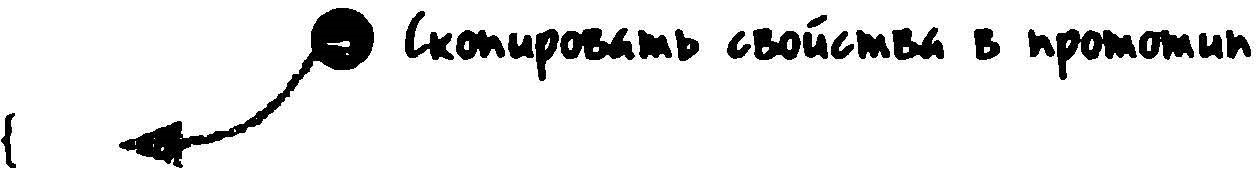 Скопировать свойства в прототип
{